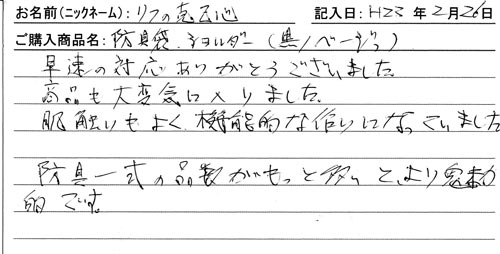 お名前(ニックネーム):リフの克己心 記入日:H23年2月26日
ご購入商品名:防具袋 ショルダー(黒/ベージュ)
早速の対応ありがとうございました
商品も大変気に入りました。
肌触りもよく、機能的な作りになっていました
防具一式の品数がもっと多いと、より魅力
的です。